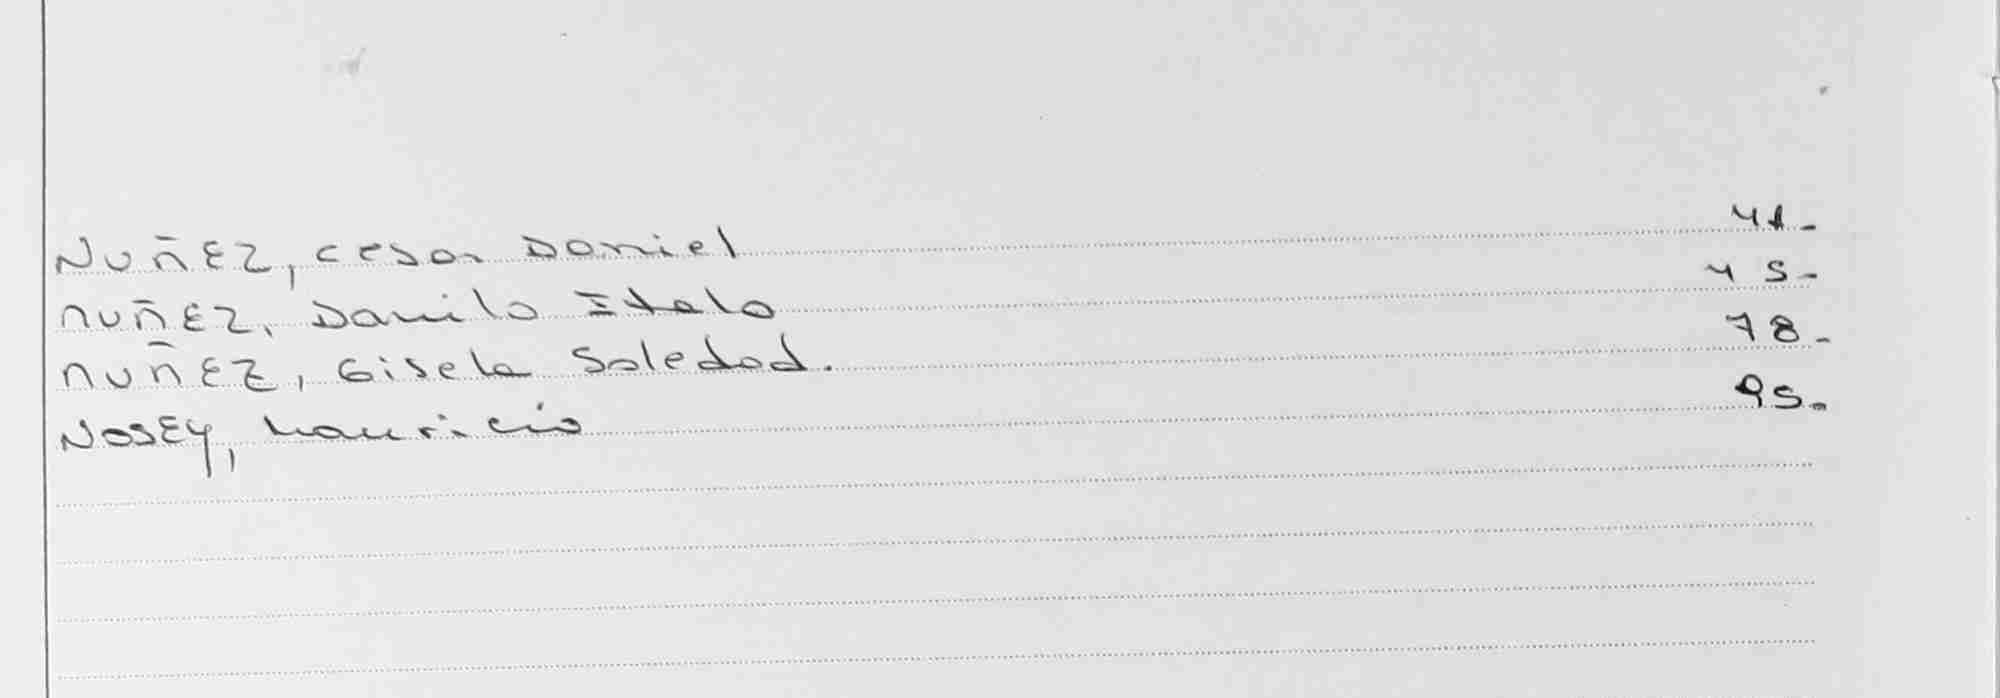 NUÑEZ, Cesar Daniel 41-
NUÑEZ, Danilo Italo 45-
NUÑEZ, Gisela Soledad. 78-
NOSEY, Mauricio 95-